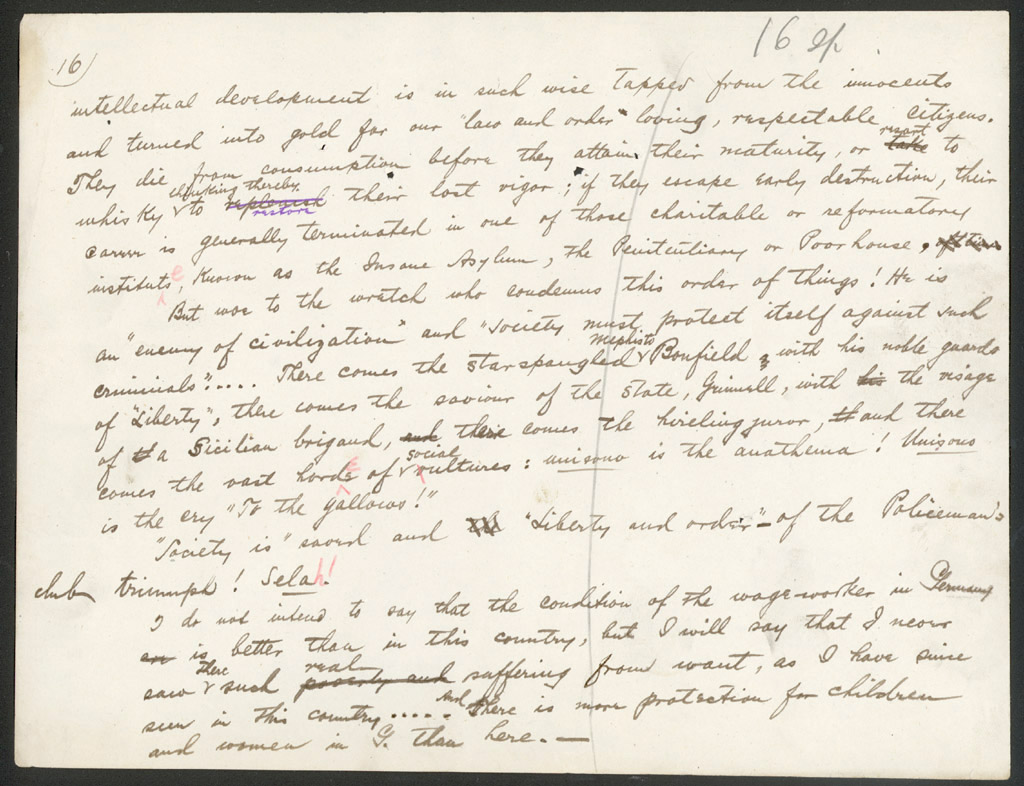 16 sp
16)
intellectual development is in such wise tapped from the innocents
and turned into gold for our "law and order" loving, respectable citizens.
They die from consumption before they attain their maturity, or take resort to
whisky thinking thereby to replenish restore their lost vigor; if they escape early destruction, their
career is generally terminated in one of those charitable or reformatory
institutes, known as the Insane Asylum, the Penitentiary or Poorhouse,
But woe to the wretch who condemns this order of things! He is
an "enemy of civilization" and "society must protect itself against such
criminals"..... There comes the starspangled Mephisto Bonfield, with his noble guards
of "Liberty"; there comes the saviour of the State, Grinnell, with his the visage
of a Sicilian brigand, and there comes the hireling juror, and there
comes the vast horde of social vultures: unisono is the anathema! Unisono
is the cry "To the gallows!"
"Society is" saved and "Liberty and order" – of the Policeman's
club triumph! Selah!
I do not intend to say that the condition of the wage-worker in Germany
is better than in this country, but I will say that I never
saw there such poverty and real suffering from want, as I have since
seen in this country..... And there is more protection for children
and women in G. than here. —